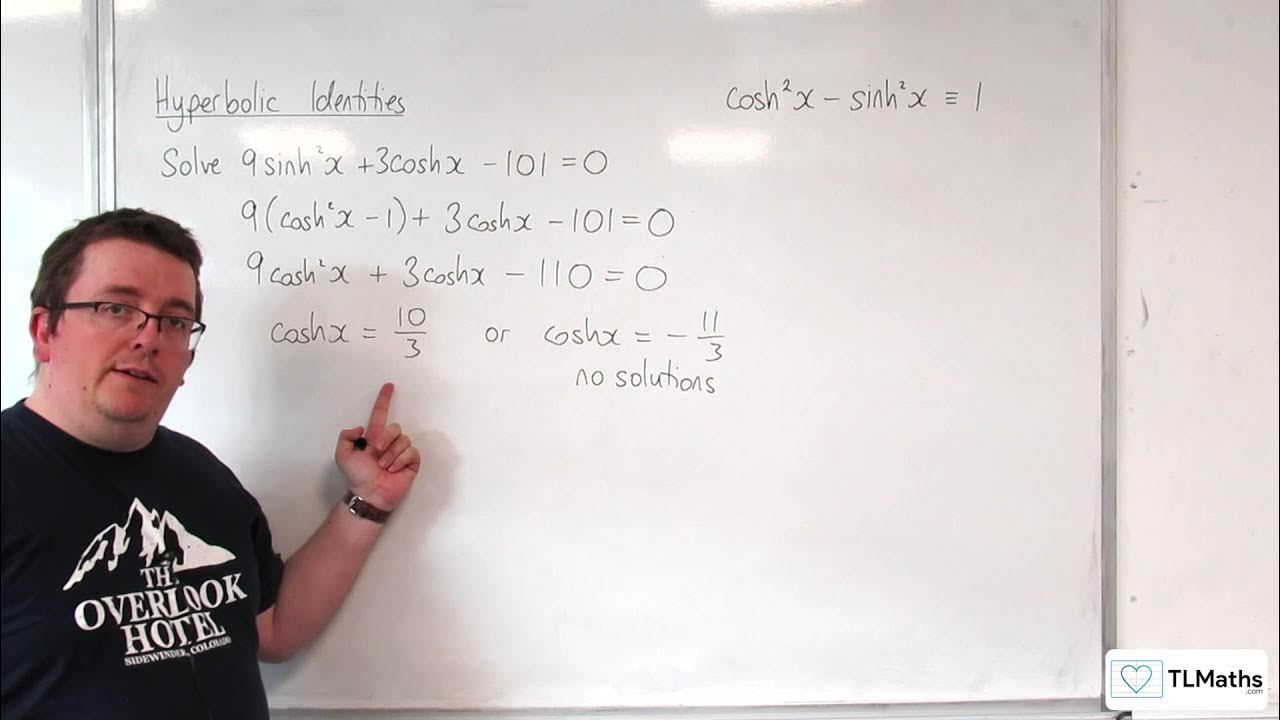 Hyperbolic Identities
cosh²x − sinh²x ≡ 1
Solve 9sinh²x + 3coshx − 101 = 0
9(cosh²x − 1) + 3coshx − 101 = 0
9cosh²x + 3coshx − 110 = 0
coshx = 10/3 or coshx = − 11/3
no solutions
TH
OVERLOOK
HOTEL
SIDEWINDER, COLORADO
TLMaths
.com